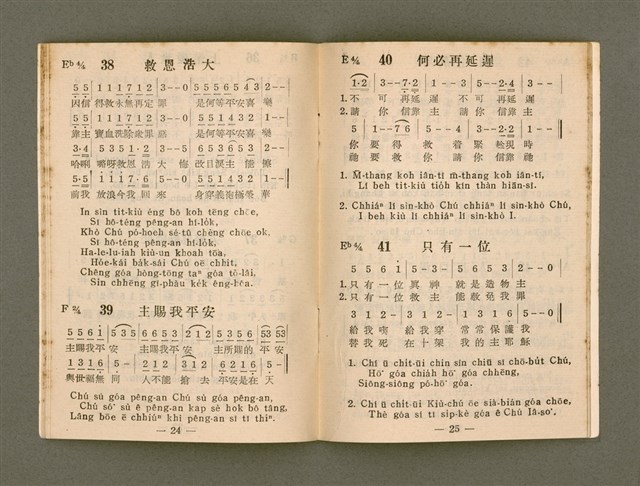 E♭ 4/4 38 救恩浩大
5 5 1 1 1 7 1 2 3--0 5 5 5 6 5 4 3 2--
因信 得救永無再定 罪 是何等平安喜 樂
5 5 1 1 1 7 1 2 3--0 5 5 1 4 3 2 1--
靠主 寶血洗除 罪惡 是何等平安喜 樂
5 3 5 1 3 2 1 6-- 6 5 3 6 5 3 2--
哈唎 救恩浩大 改目 主 能
5·5 1 1 1 7·6 5--0
前我 放浪今我回來
In sìn tit-kiù éng bô koh tēng chōe,
Sī hô-téng pêng-an hí-lo̍k,
Khò Chú pó-hoeh sé-tû chêng chōe ok,
Sī hô-téng pêng-an hí-lo̍k.
Ha-le-lu-iah kiù-un khoah tōa,
Hôe-kái ba̍k-sái Chú oē chhit,
Chêng góa hòng-tōng taⁿ góa tò-lâi,
Sin chhēng gī-phàu ke̍k êng-hôa.
F 2/4 39 主賜我平安
5 5 6 1 5 3 5 6 6 5 3 2 2 1 2 5 5 5 6 5 3 5 3
主賜我平安 主賜我平安 主所賜的 平安
1 3 1 6 5-- 2 1 2 3 1 2 6 2 1 6 5--
與世福無同 人不能 搶去 平安是在天
Chú sù góa pêng-an Chú sù góa pêng-an,
Chú só͘ sù ê pêng-an kap sè hok bô tâng,
Lâng bōe ē chhiúⁿ khì pêng-an sī tī thiⁿ.
— 24 —
E 4/4 40 何必再延遲
1·2 3--7·2 1--1 3--5 2·4 3--
1. 不 可 再延遲 不 可 再延遲
2. 請 你 信靠主 請 你 信靠主
5 1--7 6 5--4 3--2·2 1--
你 要 得 救 着 緊 趁現時
祂 要 救 你 請 你 信靠祂
1. M̄-thang koh iân-tî m̄-thang koh iân-tî,
Lí beh tit-kiù tio̍h kín thàn hiān-sî.
2. Chhiáⁿ lí sìn-khò Chú chhiáⁿ lí sìn-khò Chú,
I beh kiù lí chhiáⁿ lí sìn-khò I.
E♭ 4/4 41 只有一位
5 5 6 1 5-3- 5 6 5 3 2--0
1. 只有一位眞神 就是造物主
2. 只有一位救主 能赦免我罪
3 1 2- 3 1 2- 1 3 1 6 5--0
給我喫 給我穿 常常保護我
替我死 在十架 我的主耶穌
1. Chí ū chi̍t-ūi chin sîn chiū sī chō-bu̍t Chú,
Hō͘ góa chia̍h hō͘ góa chhēng,
Siông-siông pó-hō͘ góa.
2. Chí ū chi̍t-ūi Kiù-chú oē sià-bián góa chōe,
Thè góa sí tī si̍p-kè góa ê Chú Iâ-so͘.
— 25 —